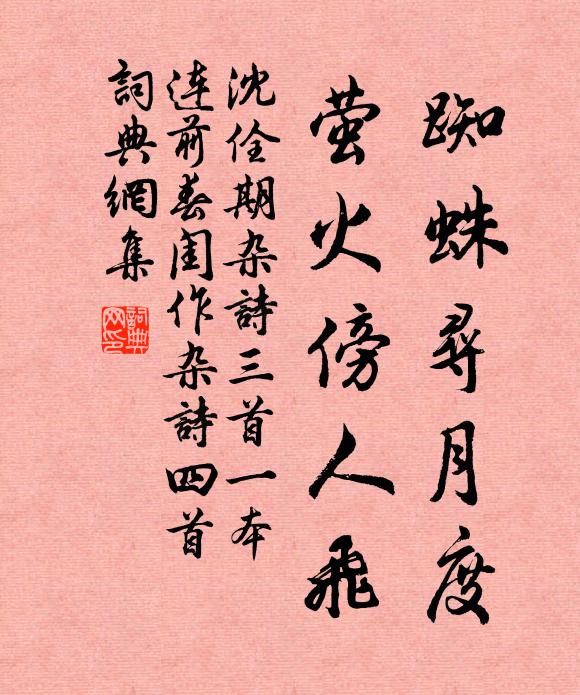 踟蛛尋月度
萤火傍人飛
沈佺期杂詩三首一本
连前春闺作杂詩四首
詞典網集
詞典
网印